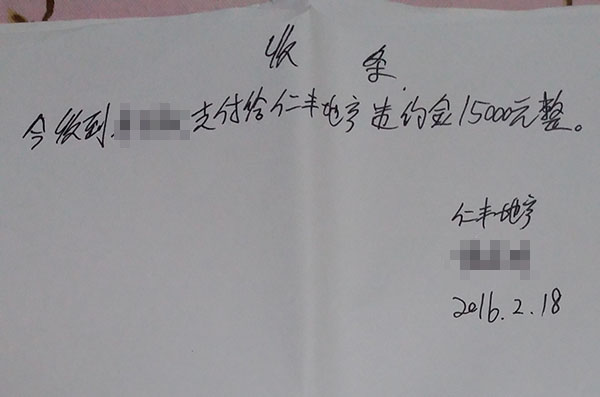 收 条
今收到 支付给仁丰地产违约金15000元整。
仁丰地产
2016.2.18